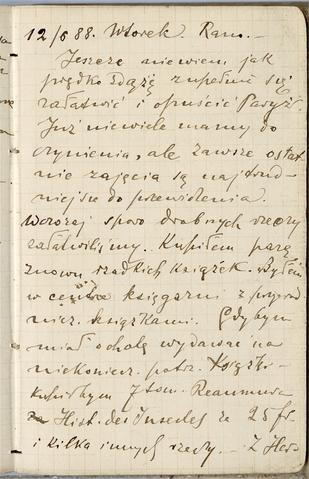 12/6 88. Wtorek. Rano. –
Jeszcze niewiem, jak
prędko zdążę zupełnie się
załatwić i opuścić Paryż.
Już niewiele mamy do
czynienia, ale zawsze ostat-
nie zajęcia są najtrud-
niejsze do przewidzenia.
Wczoraj sporo drobnych rzeczy
załatwiliśmy. Kupiłem parę
znowu rzadkich książek. Byłem
w księgarni z przyrod-
nicz. książkami. Gdybym
miał ochotę wydawać na
niekoniecz. potrz. książki
kupiłbym 7 tom. Reaumura
Hist. des Insectes za 25 fr.
i kilka innych rzeczy. – Z Her-